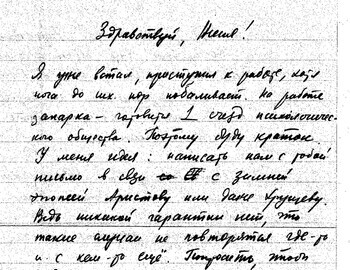 Здравствуй, Женя!
Я уже встал, приступил к работе, хотя
нога до сих пор побаливает. На работе
запарка - готовится I съезд психологичес-
кого общества. Поэтому буду краток
У меня идея: написать нам с тобой
письмо в связи с зимней
эпопеей Аристову или даже Хрущеву.
Ведь никакой гарантии нет что
такие случаи не повторятся где-то
и с кем-то ещё. Попросить, чтобы